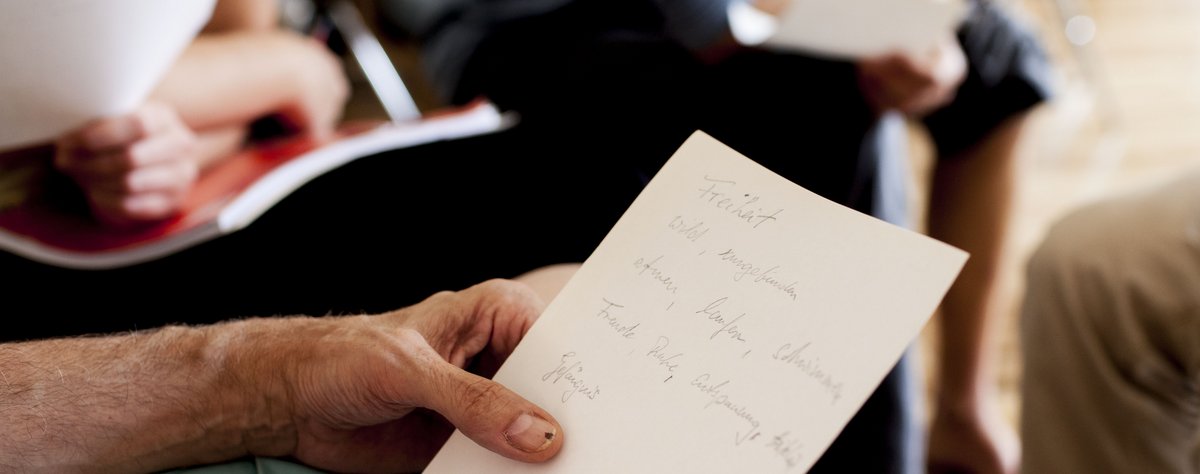 Freiheit
wild, ungebunden
atmen, laufen, schwimmen
Freude, Ruhe, Entspannung,
Gefängnis